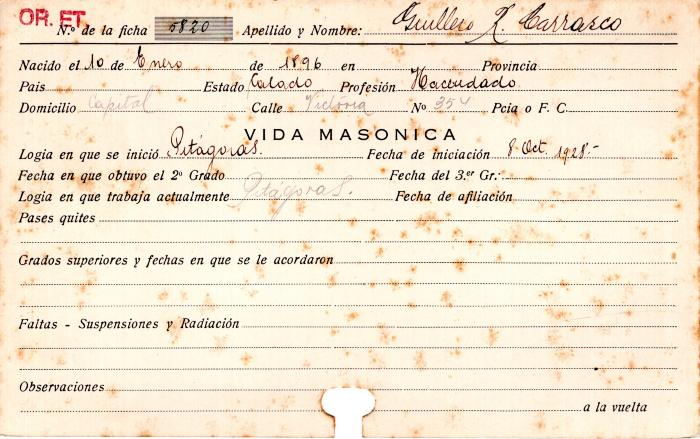 OR. ET.
N.º de la ficha 5820 Apellido y Nombre: Guillero R. Carrasco
Nacido el 10 de Enero de 1896 en Provincia
Pais Estado Casado Profesión Hacendado
Domicilio Capital Calle Victoria Nº 354 Pcia o F. C.
VIDA MASONICA
Logia en que se inició Pitágoras. Fecha de iniciación 8 Oct. 1928.-
Fecha en que obtuvo el 2º Grado Fecha del 3.er Gr.:
Logia en que trabaja actualmente Pitágoras. Fecha de afiliación
Pases quites
Grados superiores y fechas en que se le acordaron
Faltas - Suspensiones y Radiación
Observaciones
a la vuelta